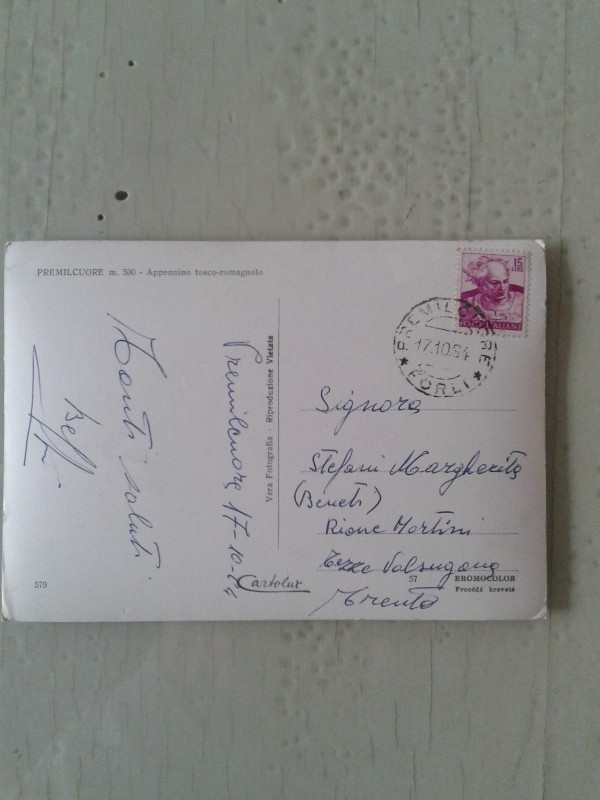 PREMILCUORE m. 500 - Appennino tosco-romagnolo
15
LIRE
POSTE ITALIANE
PREMILCUORE
17.10.64
FORLI
Premilcuore 17-10-64
Tanti saluti
Vera Fotografia - Riproduzione Vietata
Signora
Stefani Margherita
(Beneti)
Rione Martini
Tezze Valsugana
Trento
579
Cartolux
57
BROMOCOLOR
Procédé breveté